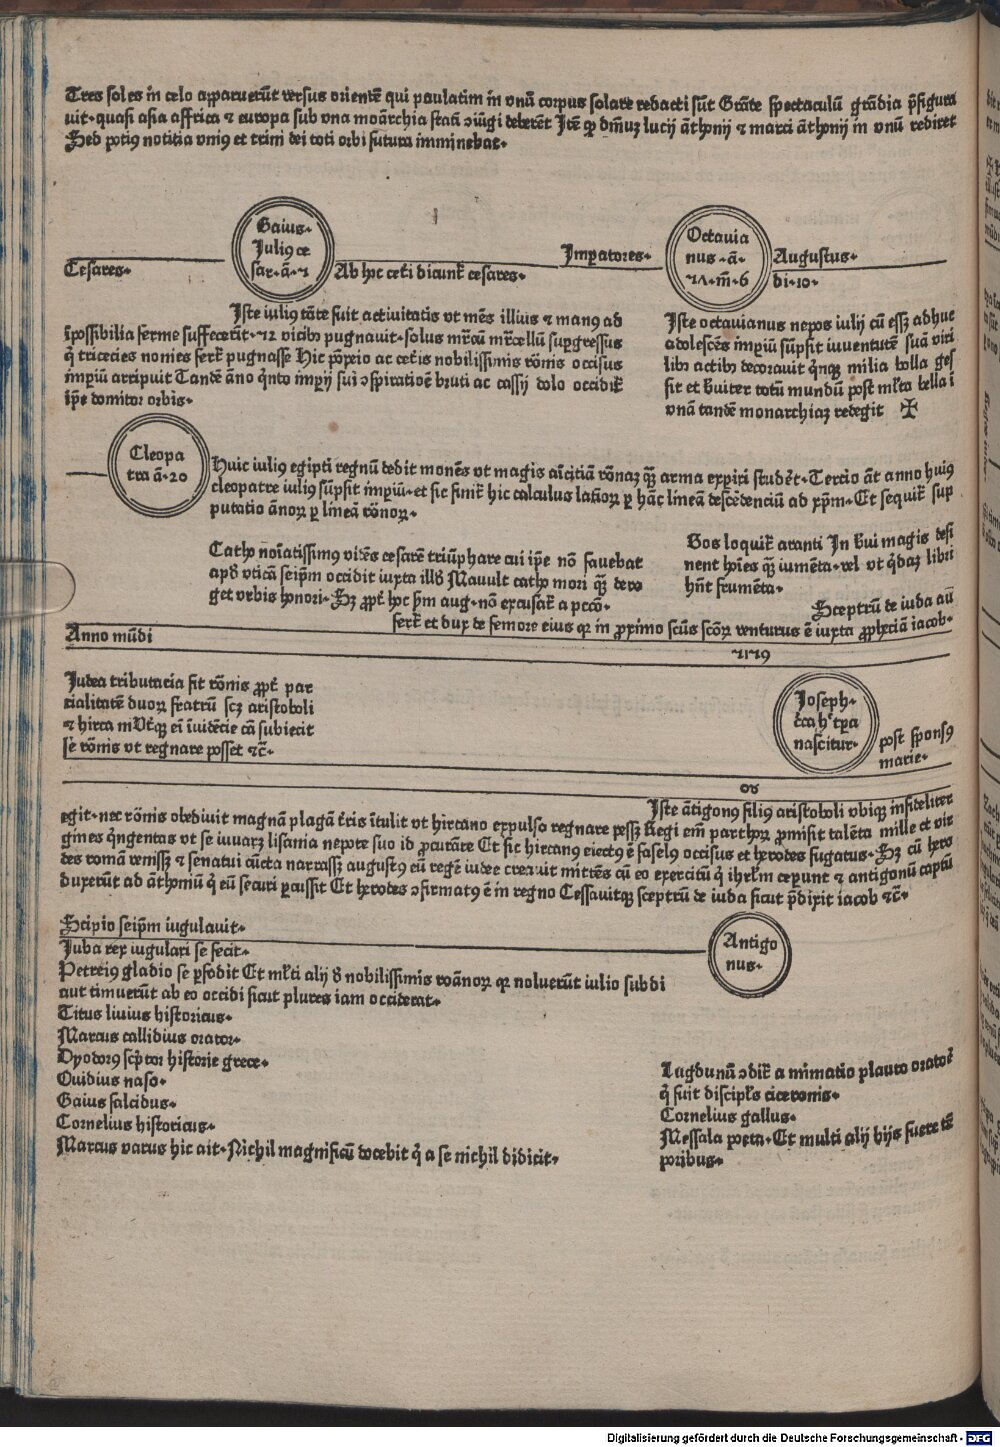 Tres soles in celo apparuerūt versus orientē qui paulatim in vnū corpus solare redacti sūt Grāte spectaculū grādia p̄figura
uit·quasi asia affrica ⁊ europa sub vna moārchia statī ↄiūgi deberēt Itē ꝙ dm̄iuʒ lucij āthonij ⁊ marci āthonij in vnū rediret
Sed poti⁹ noticia vni⁹ et trini dei toti orbi futura imminebat·
Gaius·
Juli⁹ ce
sar·ā·⁊
Cesares·
Ab hoc ceti dicunt̄ cesares·
Imperatores·
Octauia
nus·ā·
·m̄·6
Augustus·
di·10·
Iste iuli⁹ tāte fuit actiuitatis vt mēs illius ⁊ man⁹ ad
īpossibilia ferme suffecerūt· vicib⁹ pugnauit·solus mr̄cū mr̄cellū supgressus
q̄ tricecies nonies fert̄ pugnasse Hic pōpeio ac cet̄is nobilissimis rōnis occisus
imp̄iū arripuit Tandē āno q̄nto imp̄ij sui ↄspiratioē bruti ac cassij dolo occidit̄
ip̄e domitor orbis·
Iste octauianus nepos iulij cū esset adhuc
adolescēs imp̄iū sūpsit iuuentutē suā viri
lib⁹ actib⁹ decorauit q̄nqꝫ milia bella ges
sit et buiter totū mundū post ml̄ta bella ī
vnā tandē monarchiaꝫ redegit ✠
Cleopa
tra ā·20
Huic iuli⁹ egipti regnū dedit monēs vt magis aīcitiā rōnaꝫ qꝫ̄ arma exp̄iri studēt·Tercio āt anno hui⁹
cleopatre iuli⁹ sūpsit imp̄iū·et sic finit̄ hic calculus latīoꝝ ꝑ hāc līneā descēdenciū ad xp̄m·Et sequit̄ sup
putatio ānoꝝ ꝑ līneā rōnoꝝ·
Catho noīatissim⁹ vidēs cesarē triūphare cui ip̄e nō fauebat
apd̄ vticā seip̄m occidit iuxta illd̄ Mauult catho mori qꝫ̄ dero
get vrbis honori·Sꝫ ꝓpt̄ hoc ẜm aug·nō excusat̄ a pccō·
Bos loquit̄ aranti In bui magis desi
nent hoīes qꝫ̄ iumēta·vel vt q̄daꝫ libri
hn̄t frumēta·
Sceptrū de iuda au
fert̄ et dux de femore eius ꝙ in proximo scūs scōꝝ venturus ē iuxta ꝓphēciā iacob·
Anno mūdi
Iudea tributaria fit rōnis ꝓpt̄ par
cialitatē duoꝝ fratrū scꝫ aristoboli
⁊ hircani Vtqꝫ eī īuidēcie cā subiecit
se rōnis vt regnare posset ⁊c̄·
Joseph·
nascitur·
post spons⁹
marie·
Iste ātigon⁹ fili⁹ aristoboli vbiqꝫ infideliter
egit·nec rōnis obediuit magnā plagā t̄ris ītulit vt hircano expulso regnare posꝫ Regi em̄ parthoꝝ ꝓmisit talēta mille et vir
gines q̄ngentas vt se iuuarꝫ lisania nepote suo id ꝓcurāte Et sic hircan⁹ eiect⁹ ē fasel⁹ occisus et herodes fugatus·Sꝫ cū hero
des romā venissꝫ ⁊ senatui cūcta narrassꝫ august⁹ eū regē iudee creauit mittēs cū eo exercitū q̄ ihrlm̄ ceperunt ⁊ antigonū captū
duxerūt ad āthoniū q̄ eū securi ꝑcussit Et herodes ↄfirmat⁹ ē in regno Cessauitqꝫ sceptrū de iuda sicut p̄dixit iacob ⁊c̄·
Scipio seip̄m iugulauit·
Antigo
nus·
Juba rex iugulari se fecit·
Petrei⁹ gladio se ꝑfodit Et ml̄ti alij d̄ nobilissimis roānoꝝ ꝙ noluerūt iulio subdi
aut timuerūt ab eo occidi sicut plures iam occiderat·
Titus liuius historicus·
Marcus callidius orator·
Dyodor⁹ scp̄tor historie grece·
Ouidius naso·
Gaius salcidus·
Cornelius historicus·
Marcus varus hic ait·Nichil magnificū docebit q̄ a se nichil didicit·
Lugdunū ↄdit̄ a mimatio plauto oratoē
q̄ fuit discipl̄s ciceronis·
Cornelius gallus·
Messala poeta·Et multi alij hijs fuere tē
poribus·
Digitalisierung gefördert durch die Deutsche Forschungsgemeinschaft - DFG